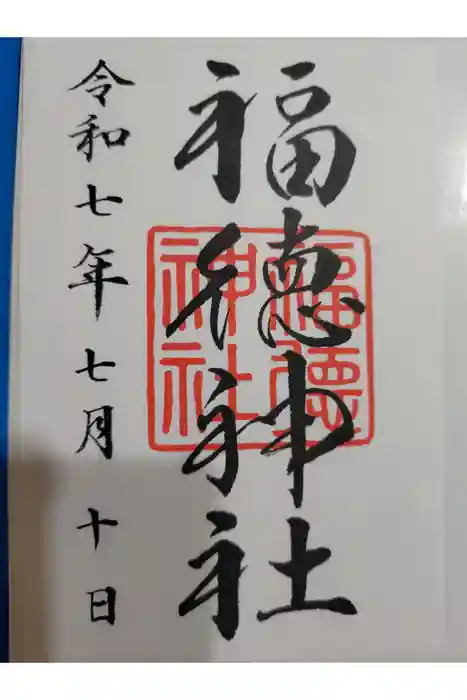 福徳神社
福徳神社
令和七年七月十日